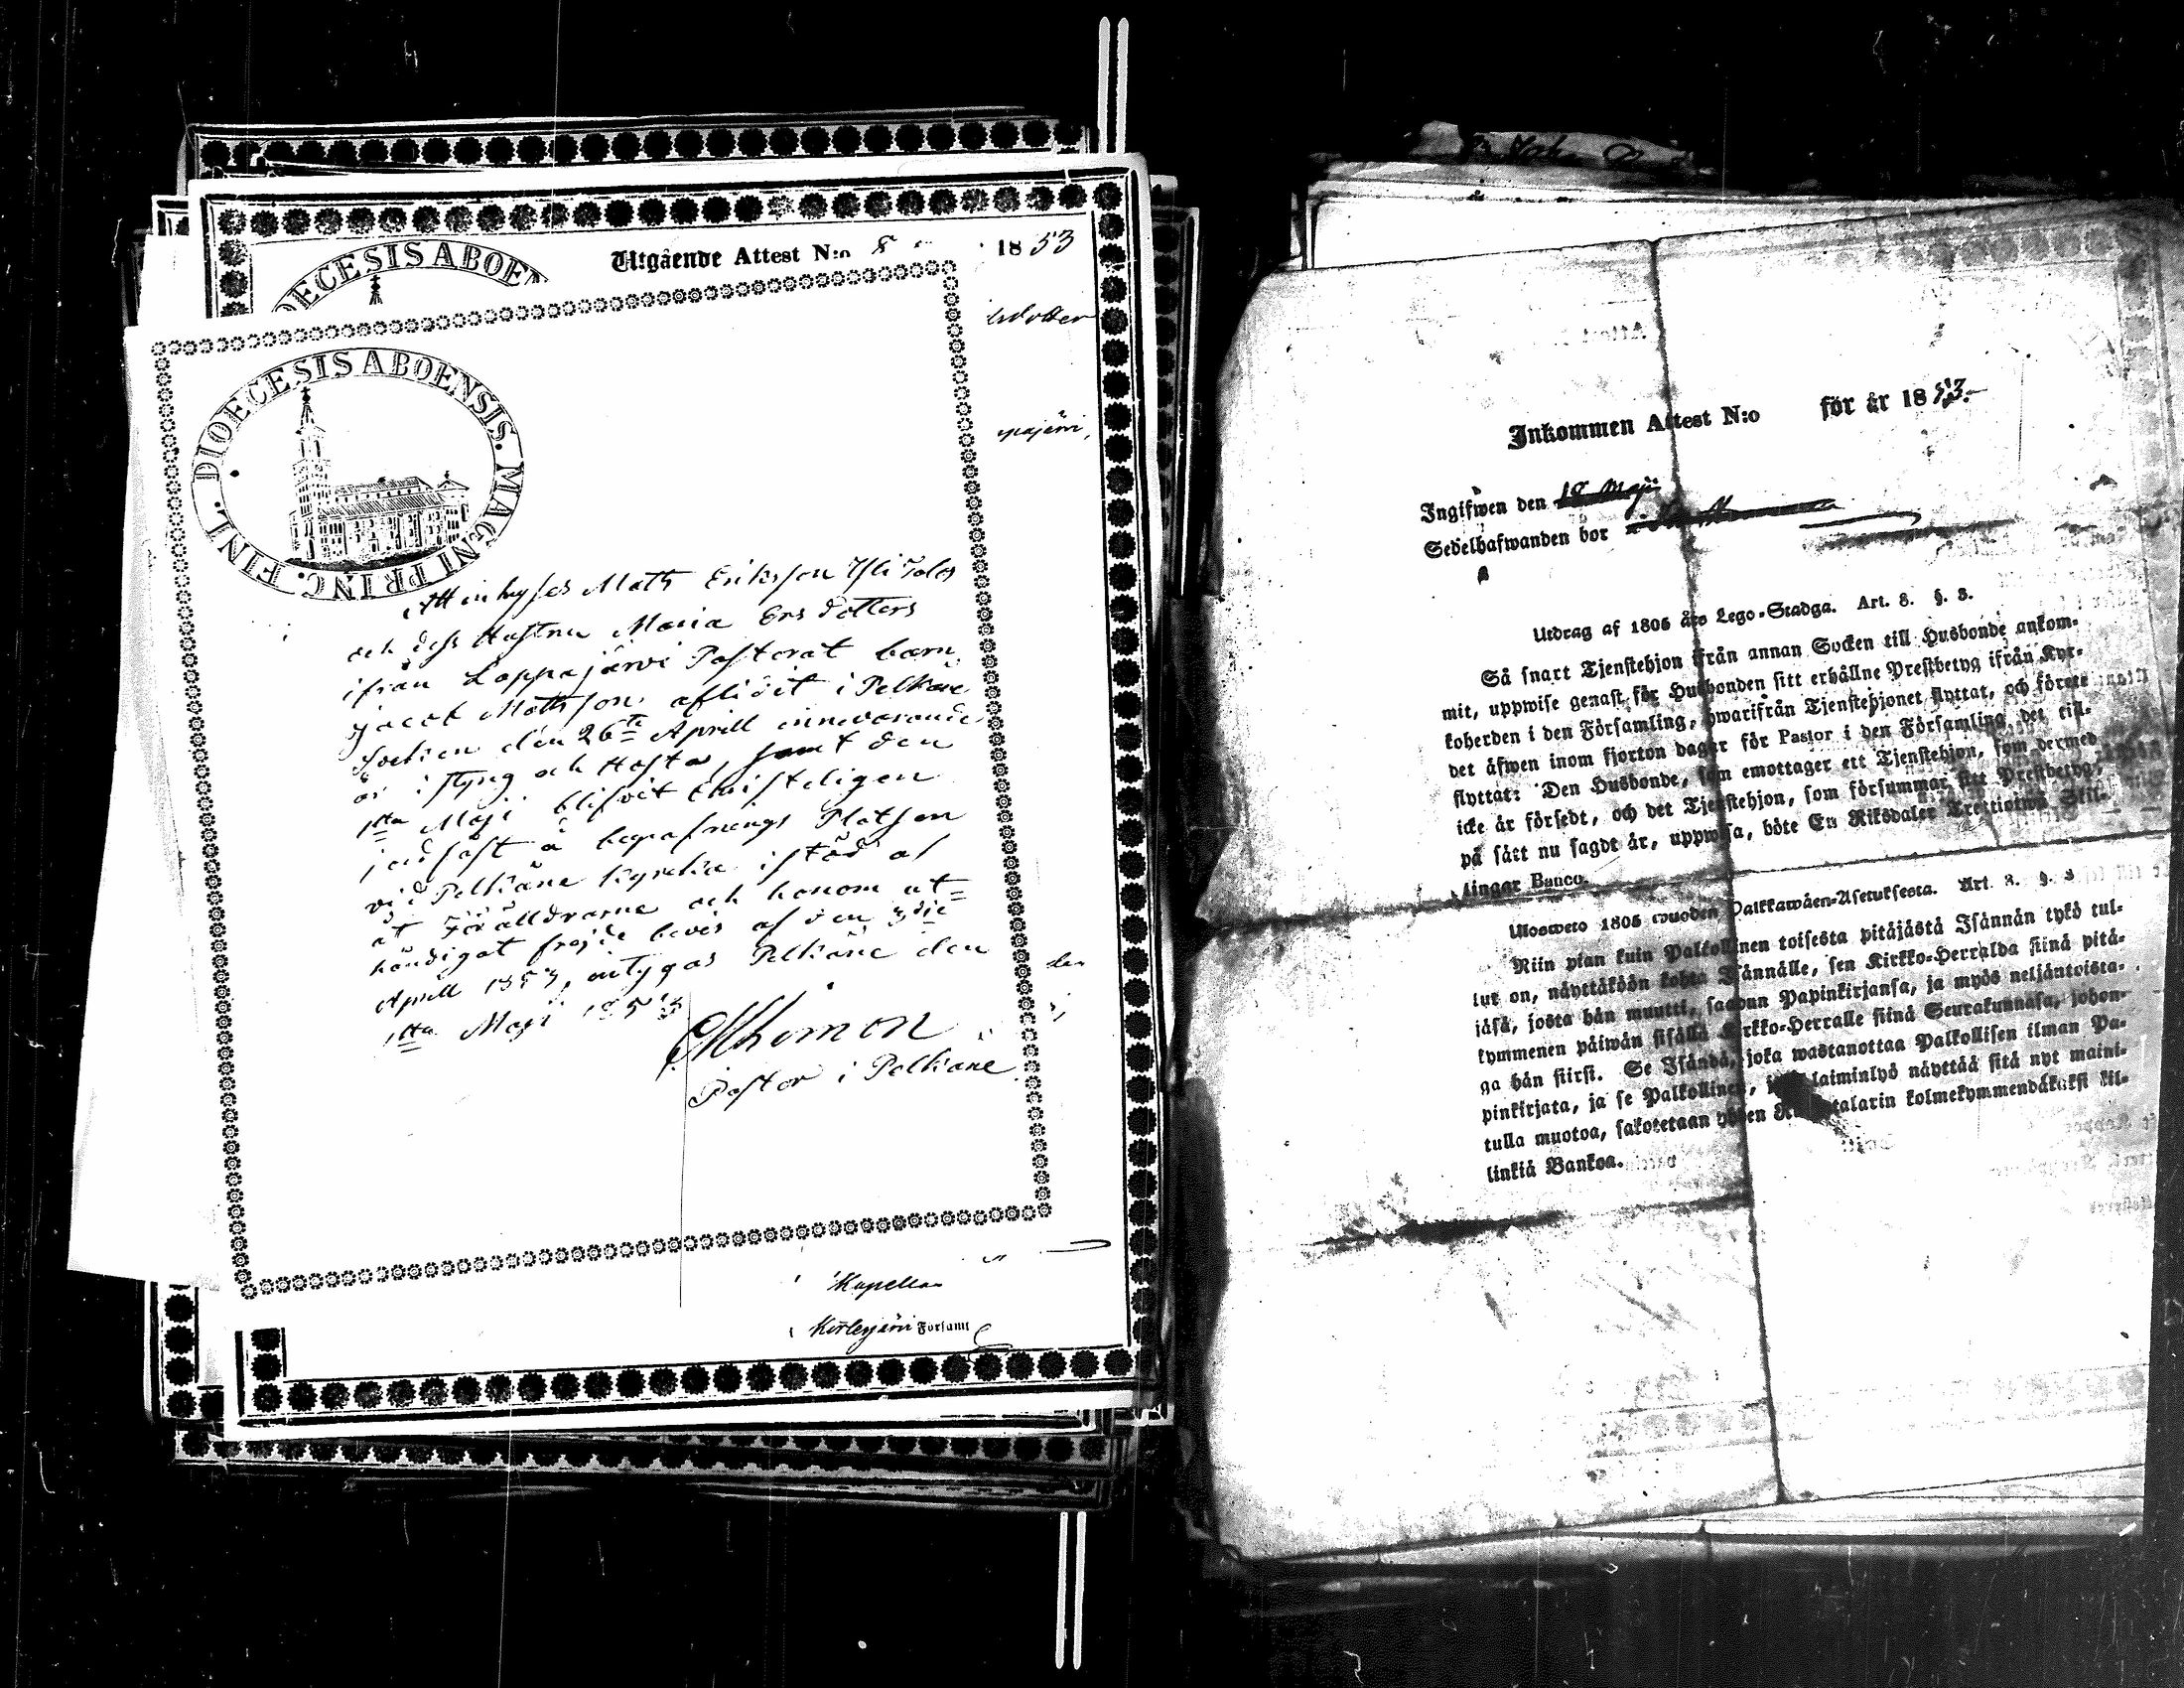 Utgående Attest N:o 8 1853
DIOECESIS ABOEN
DIOECESIS ABOENSIS. MAGNI PRINC. FINL.
Att inhyses Matts Eriksson Yli
och dess Hustru Maria Ersdotters
ifrån Lappajärvi Pastorat barn
Jacob Mattsson, aflidit i Pelkäne
Socken den 26te Aprill innevarande
år i styng och Hosta, samt den
1sta Maji blifvit Christeligen
jordfäst å begrafnings Platsen
vid Pelkäne kyrka i stöd af
åt Föräldrarne och honom ut=
händigat frejde bevis af den 3die
Aprill 1853, intygas Pelkäne den
1sta Maji 1853
Pastor i Pelkäne
Kapellan
Församl
Inkommen Attest N:o för år 1853.
Ingifwen den 18 Maji
Sedelhafwanden bor
Utdrag af 1805 års Lego-Stadga. Art. 8. §. 3.
Så snart Tjenstehjon ifrån annan Socken till Husbonde ankom-
mit, uppwise genast för Husbonden sitt erhållne Prestbetyg ifrån Kyr-
koherden i den Församling, hwarifrån Tjenstehjonet flyttat, och förete
det äfwen inom fjorton dagar för Pastor i den Församling det till-
flyttat: Den Husbonde, som emottager ett Tjenstehjon, som dermed
icke är försedt, och det Tjenstehjon, som försummar sitt Prestbetyg,
på sätt nu sagdt är, uppwisa, böte En Riksdaler Trettiotwå Skil-
lingar Banco.
Ulosweto 1805 wuoden Palkkawäen-Asetuksesta. Art. 8. §. 3
Niin pian kuin Palkollinen toisesta pitäjästä Isännän tykö tul-
lut on, näyttäköön kohta Isännälle, sen Kirkko-Herralda siinä pitä-
jäsä, josta hän muutti, saadun Papinkirjansa, ja myös neljäntoista-
kymmenen päiwän sisällä Kirkko-Herralle siinä Seurakunnasa, johon-
ga hän siirsi. Se Isändä, joka wastanottaa Palkollisen ilman Pa-
pinkirjata, ja se Palkollinen, joka laiminlyö näyttää sitä nyt maini-
tulla muotoa, sakotetaan yhden Riikintalarin kolmekymmendäkaksi kil-
linkiä Bankoa.